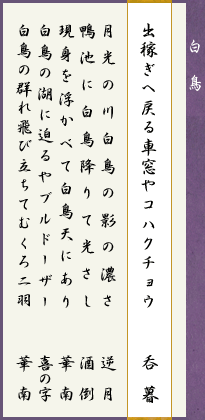 白鳥
出稼ぎへ戻る車窓やコハクチョウ 呑暮
月光の川白鳥の影の濃さ 逆月
鴨池に白鳥降りて光さし 酒倒
現身を浮かべて白鳥天にあり 華南
白鳥の湖に迫るやブルドーザー 喜の字
白鳥の群れ飛び立ちてむくろ二羽 華南